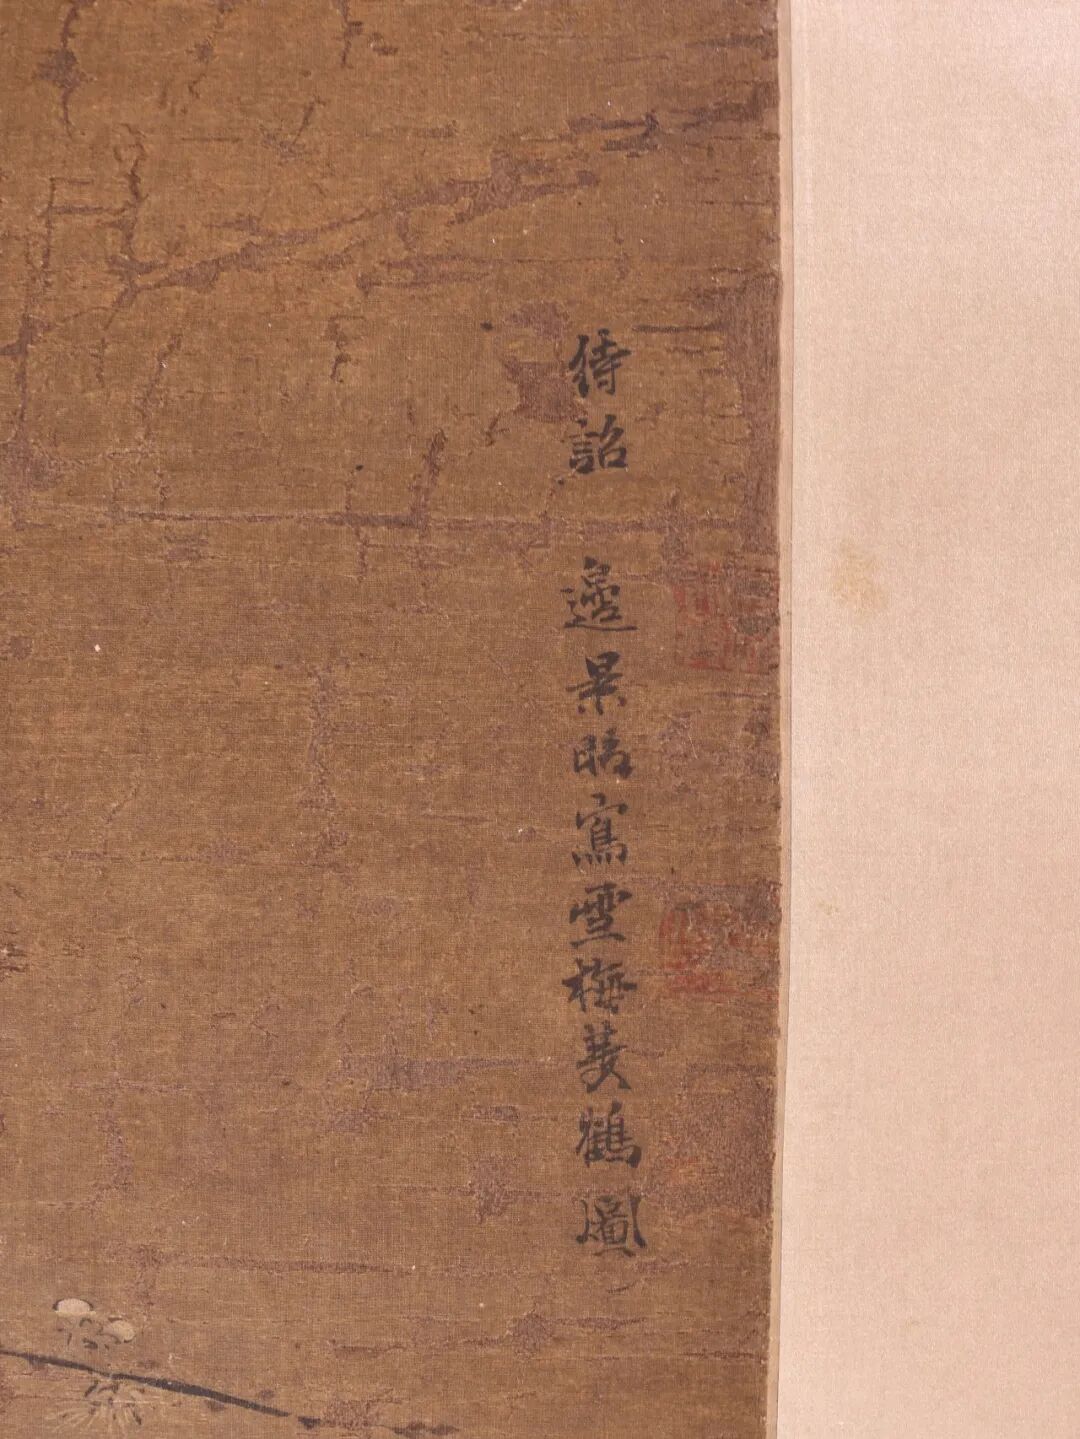 待詔 邊景昭寫雪梅雙鶴圖